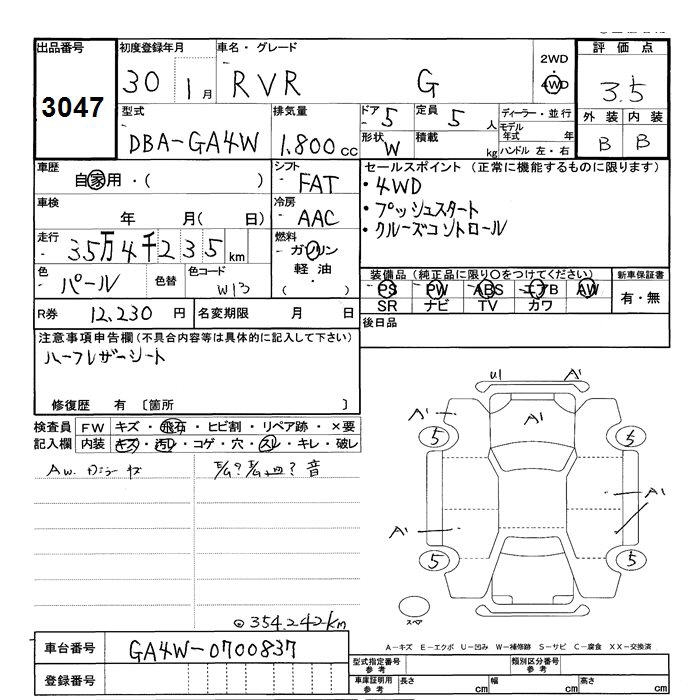 出品番号 初度登録年月 車名・グレード 評価点
3047 30 1月 RVR G 2WD 4WD 3.5
外装 内装
B B
型式 排気量 ドア 定員 ディーラー・並行
DBA-GA4W 1.800cc 5 5人 モデル年式 年
形状 積載
W kg ハンドル 左・右
車歴 自家用・( ) シフト FAT
車検 年 月( 日) 冷房 AAC
走行 35万4千235km 燃料 ガソリン
軽油
・( )
色 パール 色替 色コード W13
R券 12,230円 名変期限 月 日
セールスポイント (正常に機能するものに限ります)
・4WD
・プッシュスタート
・クルーズコントロール
装備品(純正品に限り○をつけてください) 新車保証書
PS PW ABS エアB AW 有・無
SR ナビ TV カワ
後日品
注意事項申告欄(不具合内容等は具体的に記入して下さい)
ハーフレザーシート
修復歴 有 〔箇所 〕
検査員 FW キズ・飛石・ヒビ割・リペア跡・×要
記入欄 内装 キズ・汚レ・コゲ・穴・スレ・キレ・破レ
AW.
音
U1 A1
A1 A1
5 5
A1
A1
5 5
スペア
◎354.242km
A-キズ E-エクボ U-凹み W-補修跡 S-サビ C-腐食 XX-交換済
車台番号 GA4W-0700837
登録番号
型式指定番号 参考 類別区分番号 参考
車庫証明用 参考 長さ cm 幅 cm 高さ cm